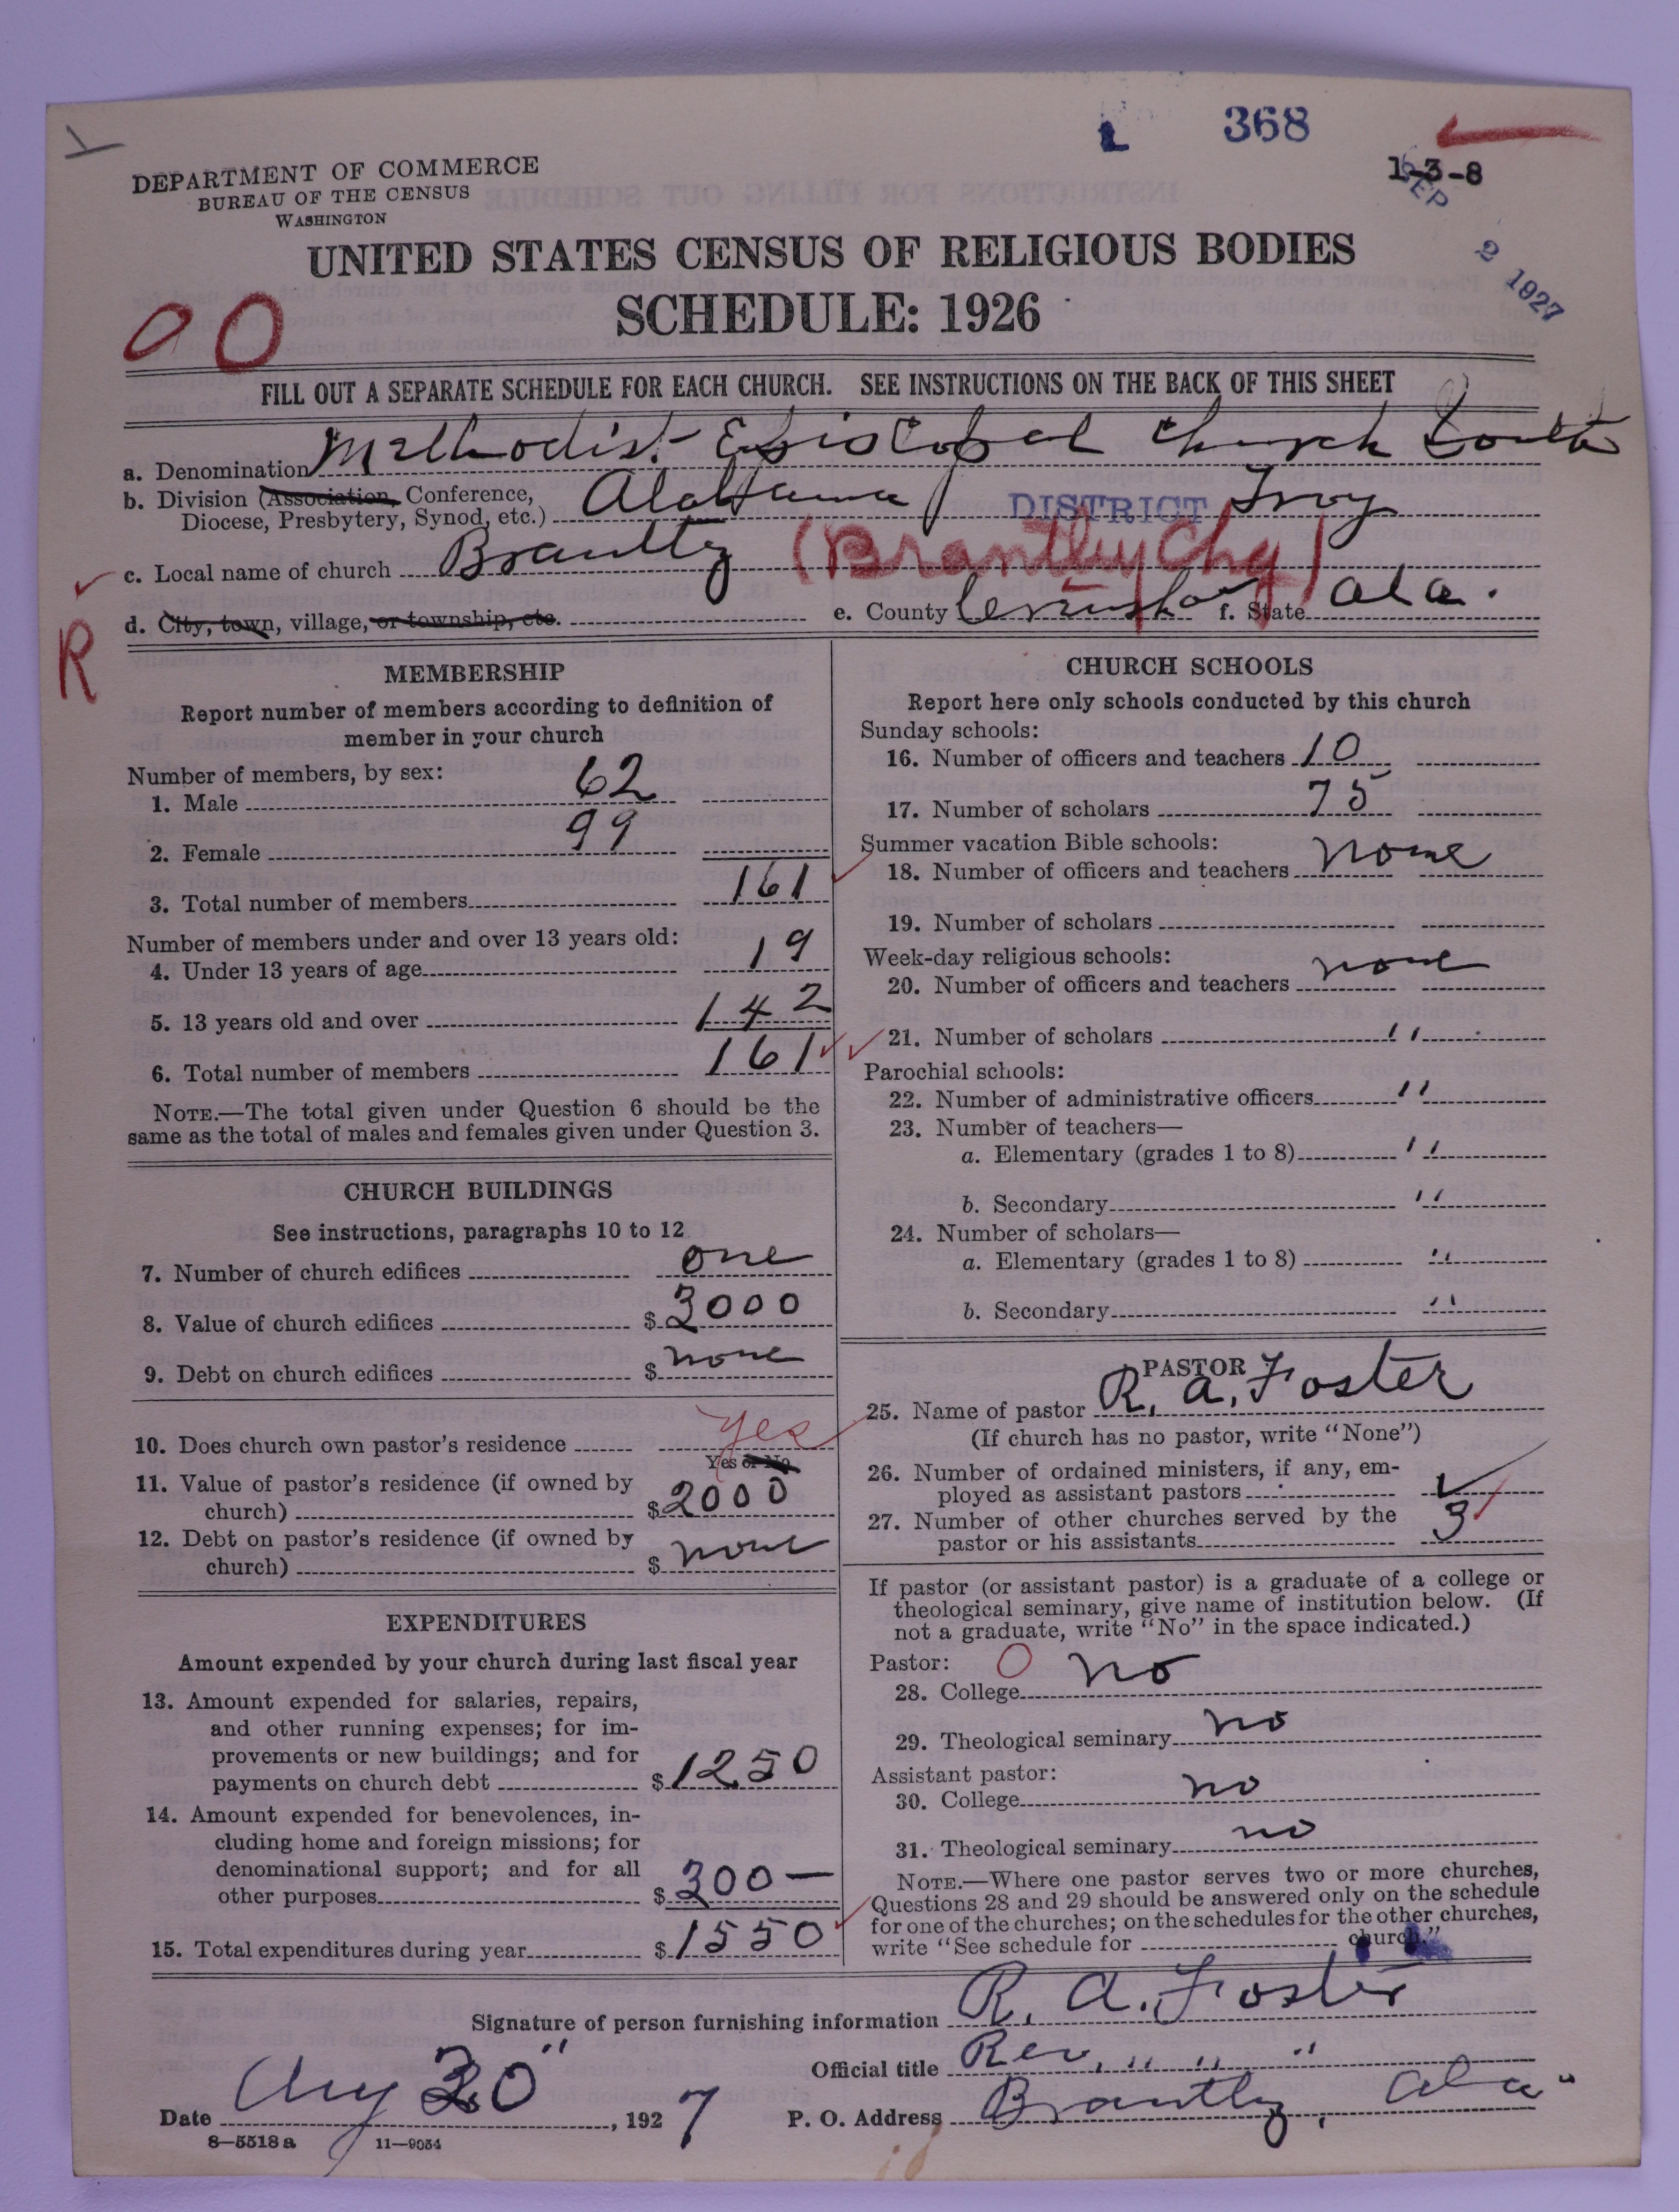 368
1-3-8
SEP 2 1927
DEPARTMENT OF COMMERCE
BUREAU OF THE CENSUS
WASHINGTON
UNITED STATES CENSUS OF RELIGIOUS BODIES
SCHEDULE: 1926
FILL OUT A SEPARATE SCHEDULE FOR EACH CHURCH. SEE INSTRUCTIONS ON THE BACK OF THIS SHEET
a. Denomination Methodist Episcopal Church South
b. Division (Association, Conference,
Diocese, Presbytery, Synod, etc.) Alabama DISTRICT Troy
c. Local name of church Brantly (Brantley Chg)
d. City, town, village, or township, etc. e. County f. State Ala.
R
MEMBERSHIP
Report number of members according to definition of
member in your church
Number of members, by sex:
1. Male 62
2. Female 99
3. Total number of members 161
Number of members under and over 13 years old:
4. Under 13 years of age 19
5. 13 years old and over 142
6. Total number of members 161
NOTE.—The total given under Question 6 should be the
same as the total of males and females given under Question 3.
CHURCH BUILDINGS
See instructions, paragraphs 10 to 12
7. Number of church edifices one
8. Value of church edifices $ 3000
9. Debt on church edifices $ none
10. Does church own pastor's residence yes
Yes or No
11. Value of pastor's residence (if owned by
church) $ 2000
12. Debt on pastor's residence (if owned by
church) $ none
EXPENDITURES
Amount expended by your church during last fiscal year
13. Amount expended for salaries, repairs,
and other running expenses; for im-
provements or new buildings; and for
payments on church debt $ 1250
14. Amount expended for benevolences, in-
cluding home and foreign missions; for
denominational support; and for all
other purposes $ 300—
15. Total expenditures during year $ 1550
CHURCH SCHOOLS
Report here only schools conducted by this church
Sunday schools:
16. Number of officers and teachers 10
17. Number of scholars 75
Summer vacation Bible schools:
18. Number of officers and teachers none
19. Number of scholars
Week-day religious schools:
20. Number of officers and teachers none
21. Number of scholars "
Parochial schools:
22. Number of administrative officers "
23. Number of teachers—
a. Elementary (grades 1 to 8) "
b. Secondary "
24. Number of scholars—
a. Elementary (grades 1 to 8) "
b. Secondary "
PASTOR
25. Name of pastor R. A. Foster
(If church has no pastor, write "None")
26. Number of ordained ministers, if any, em-
ployed as assistant pastors
27. Number of other churches served by the
pastor or his assistants 3
If pastor (or assistant pastor) is a graduate of a college or
theological seminary, give name of institution below. (If
not a graduate, write "No" in the space indicated.)
Pastor:
28. College no
29. Theological seminary no
Assistant pastor:
30. College no
31. Theological seminary no
NOTE.—Where one pastor serves two or more churches,
Questions 28 and 29 should be answered only on the schedule
for one of the churches; on the schedules for the other churches,
write "See schedule for church."
Signature of person furnishing information R. A. Foster
Official title Rev. " " "
Date Aug 30", 1927 P. O. Address Brantly, Ala
8—5518 a 11—9054